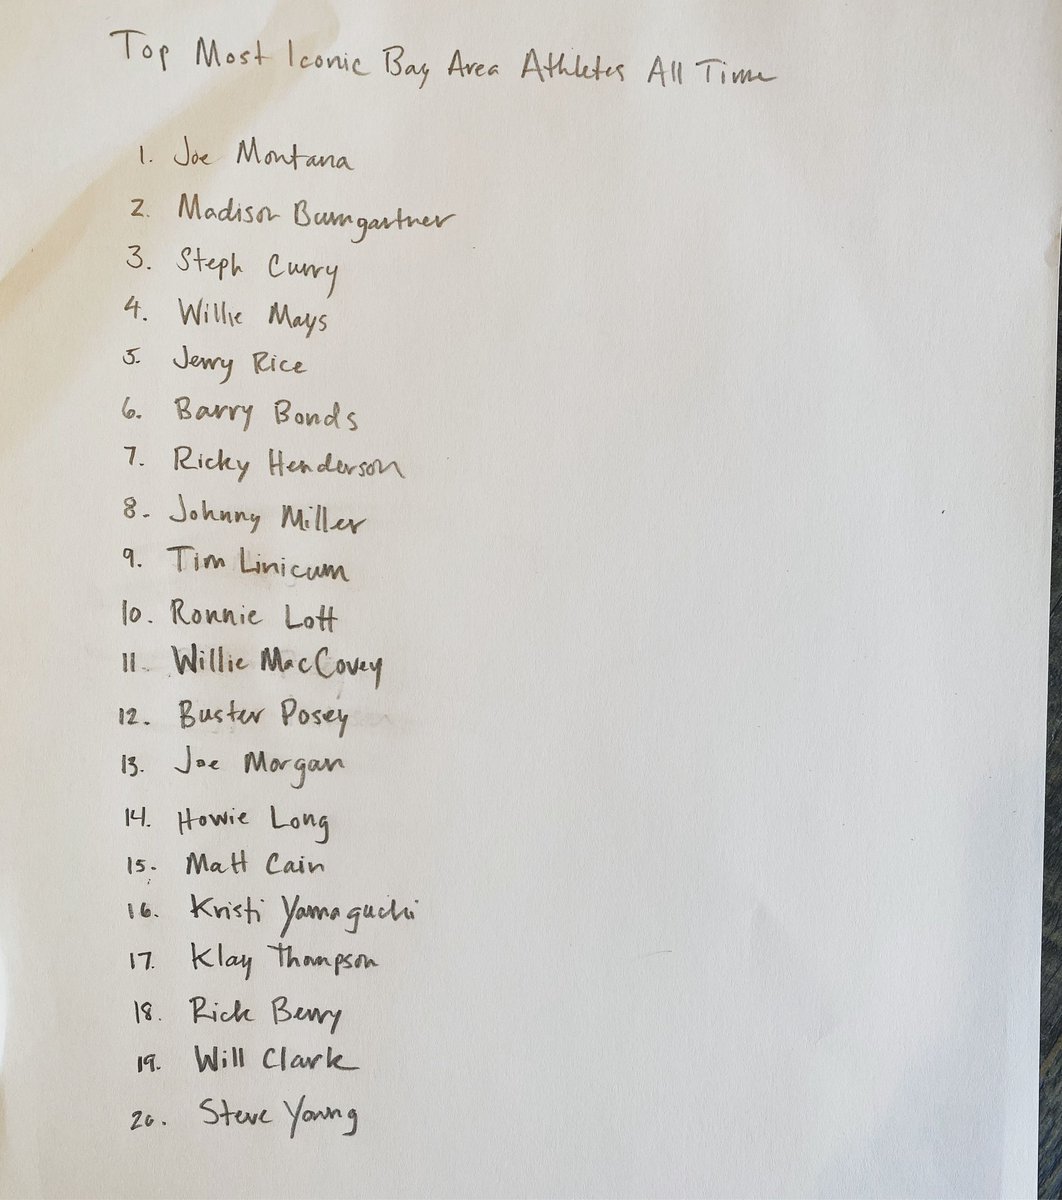 Top Most Iconic Bay Area Athletes All Time
1. Joe Montana
2. Madison Bumgartner
3. Steph Curry
4. Willie Mays
5. Jerry Rice
6. Barry Bonds
7. Ricky Henderson
8. Johnny Miller
9. Tim Linicum
10. Ronnie Lott
11. Willie MacCovey
12. Buster Posey
13. Joe Morgan
14. Howie Long
15. Matt Cain
16. Kristi Yamaguchi
17. Klay Thompson
18. Rick Berry
19. Will Clark
20. Steve Young